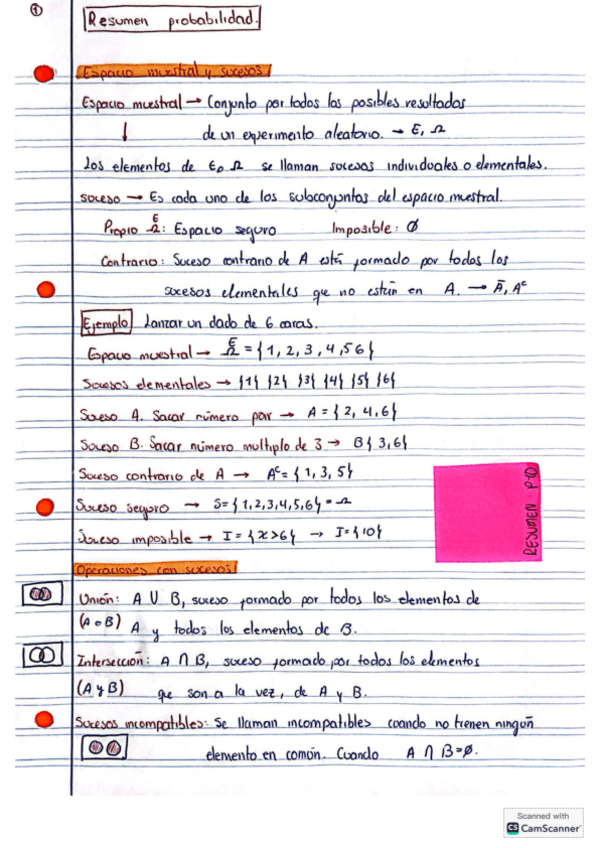 ①
Resumen probabilidad.
Espacio muestral y sucesos
Espacio muestral → Conjunto por todos los posibles resultados
↓ de un experimento aleatorio. → E, Ω
Los elementos de E o Ω se llaman sucesos individuales o elementales.
suceso → Es cada uno de los subconjuntos del espacio muestral.
Propio E Ω: Espacio seguro Imposible: ∅
Contrario: Suceso contrario de A está formado por todos los
sucesos elementales que no están en A. → Ā, Aᶜ
Ejemplo Lanzar un dado de 6 caras.
Espacio muestral → E Ω = {1, 2, 3, 4, 5 6}
Sucesos elementales → {1} {2} {3} {4} {5} {6}
Suceso A. Sacar número par → A = {2, 4, 6}
Suceso B. Sacar número multiplo de 3 → B {3, 6}
Suceso contrario de A → Aᶜ = {1, 3, 5}
Suceso seguro → S = {1, 2, 3, 4, 5, 6} = Ω
Suceso imposible → I = {x > 6} → I = {10}
RESUMEN
Operaciones con sucesos
Unión: A U B, suceso formado por todos los elementos de
(A o B) A y todos los elementos de B.
Intersección: A ∩ B, suceso formado por todos los elementos
(A y B) que son a la vez, de A y B.
Sucesos incompatibles: Se llaman incompatibles cuando no tienen ningún
elemento en común. Cuando A ∩ B = ∅.
Scanned with
CS CamScanner